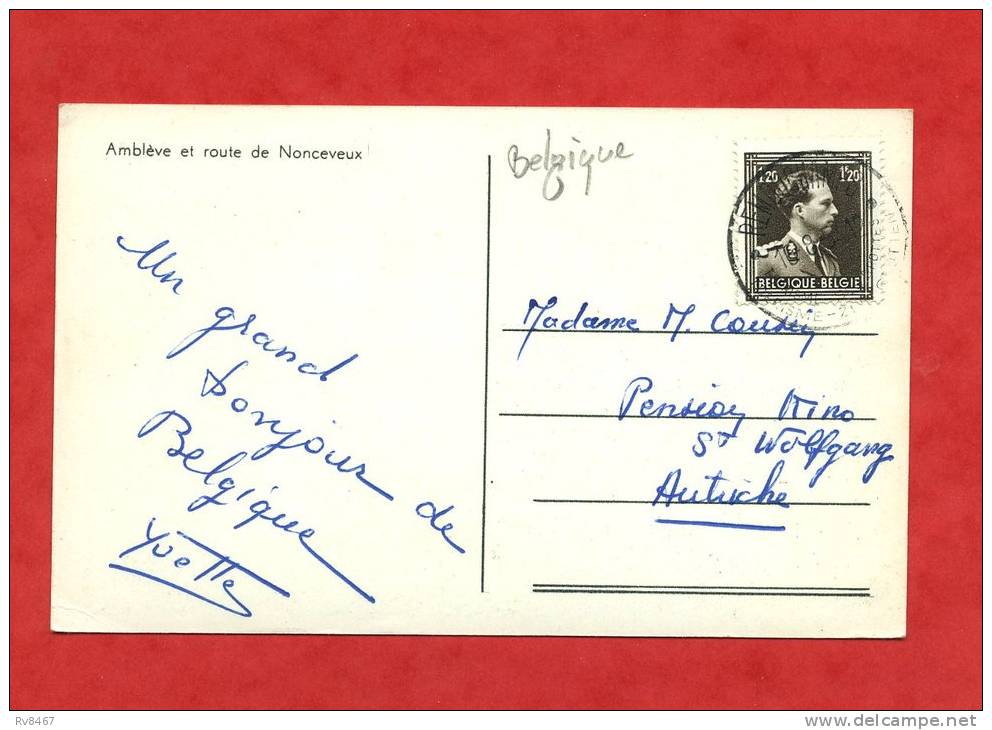 Amblève et route de Nonceveux
Belgique
1.20 1.20
BELGIQUE-BELGIE
Un
grand
bonjour de
Belgique
Yvette
Madame M.
Pension
St Wolfgang
Autriche
Rv8467
www.delcampe.net